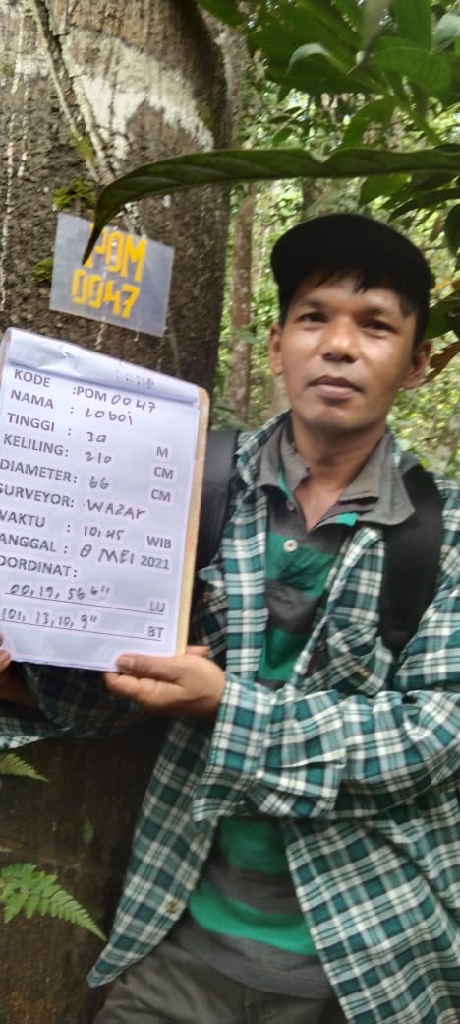 POM
0047
KODE :POM 0047
NAMA : LOBOI
TINGGI : 30 M
KELILING: 210 CM
DIAMETER: 66 CM
SURVEYOR: WAZAR
WAKTU : 10,45 WIB
TANGGAL : 8 MEI 2021
KOORDINAT:
00,19,56 LU
101,13,10,9" BT